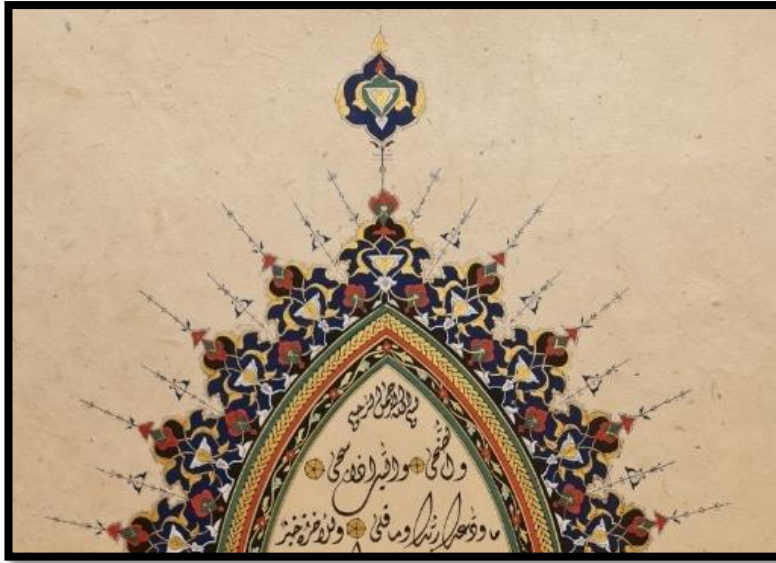 بسم الله الرحمن الرحيم
والضحى والليل اذا سجى
ما ودعك ربك وما قلى وللآخرة خير